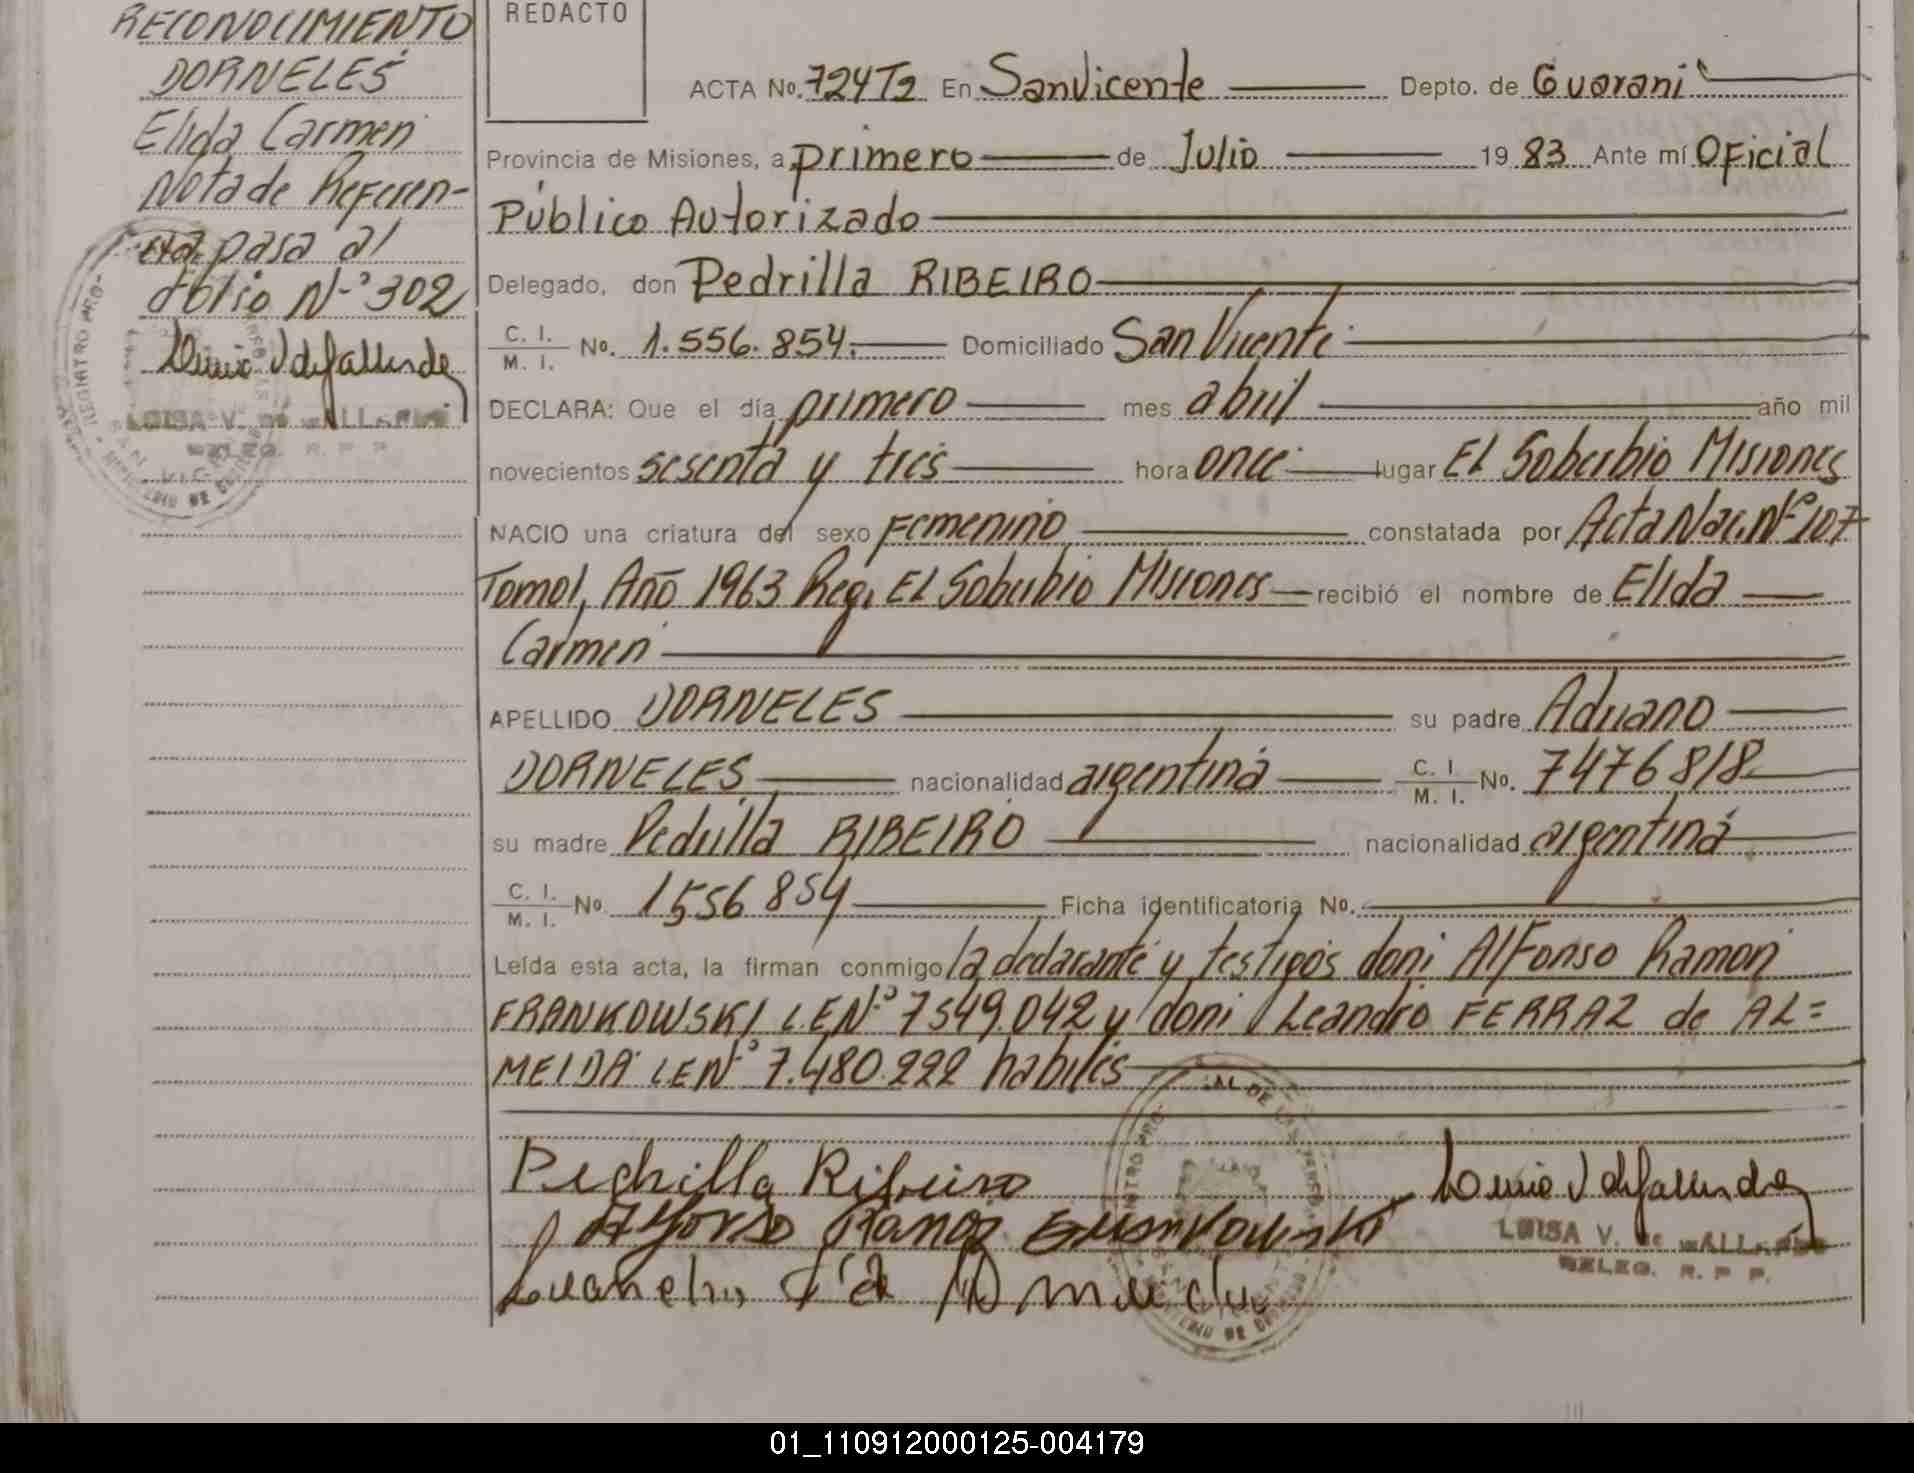 RECONOCIMIENTO
DORNELES
Elida Carmen
Nota de Referen-
cia pasa al
folio N-º 302
LUISA V. de
DELEG. R. P. P.
REDACTO
ACTA No. 724T2 En San Vicente Depto. de Guarani
Provincia de Misiones, a primero de Julio 19 83 Ante mí Oficial
Público Autorizado
Delegado, don Pedrilla RIBEIRO
C. I. M. I. No. 1.556.854. Domiciliado San Vicente
DECLARA: Que el día primero mes abril año mil
novecientos sesenta y tres hora once lugar El Soberbio Misiones
NACIO una criatura del sexo femenino constatada por Acta Nac. Nº 107
Tomo 1, Año 1963 Reg. El Soberbio Misiones recibió el nombre de Elida
Carmen
APELLIDO DORNELES su padre Adriano
DORNELES nacionalidad argentina C. I. M. I. No. 7476818
su madre Pedrilla RIBEIRO nacionalidad argentina
C. I. M. I. No. 1556854 Ficha identificatoria No.
Leída esta acta, la firman conmigo la declarante y testigos don: Alfonso Ramon
FRANKOWSKI LE Nº 7549.042 y don: Leandro FERRAZ de AL=
MEIDA LE Nº 7.480.222 habiles
Pedrilla Ribeiro
Alfonso Ramon
LUISA V. de
DELEG. R. P. P.
01_110912000125-004179